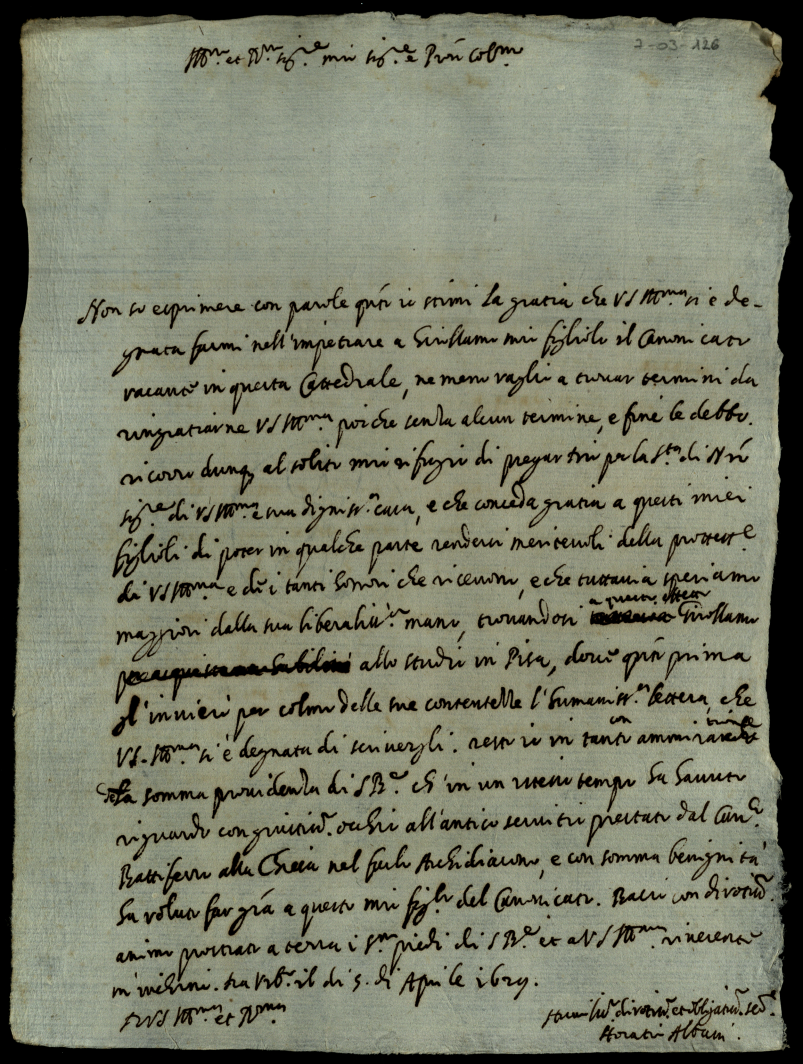 7-03-126
Ill.mo et R.mo Sig.re mio Sig.re e Pron Col.mo
Non so esprimere con parole qnto io stimi la gratia che VS Ill.ma si è de-
gnata farmi nell'impetrare a Girollamo mio figliolo il Canonicato
vacante in questa Cattedrale, ne meno vaglio a trovar termini da
ringratiarne VS Ill.ma poiche senza alcun termine, e fine le debbo.
ricorro dunq. al solito mio rifugio di pregar Dio per la S.tà di Nrõ
Sig.re di VS Ill.ma e sua digniss.a casa, e che conceda gratia a questi miei
figlioli di poter in qualche parte rendersi meritevoli della protett.e
di VS Ill.ma e de i tanti honori che ricevono, e che tuttavia speriamo
maggiori dalla sua liberaliss.a mano, trovandosi a questo effetto Girollamo
allo studio in Pisa, dove qnto prima
gl'inviero per colmo delle sue contentezze l'humaniss.a lettera, che
VS. Ill.ma si è degnata di scrivergli. resto io in tanto con ammiratione
della somma providenza di S B.ne ch'in un istesso tempo ha havuto
riguardo con giustiss.i occhi all'antico servitio prestato dal Can.co
Battiferro alla Chiesa nel farlo Archidiacono, e con somma benignità
ha voluto far grã a questo mio figl.o del Canonicato. Bacio con divotiss.o
animo prostrato a terra i S.mi piedi di S B.ne et a VS Ill.ma riverente
m'inchino. da Urb.o il di 5. di Aprile 1629.
D VS Ill.ma et R.ma
Humiliss.o divotiss.o et obligatiss.o ser.e
Horatio Albani.